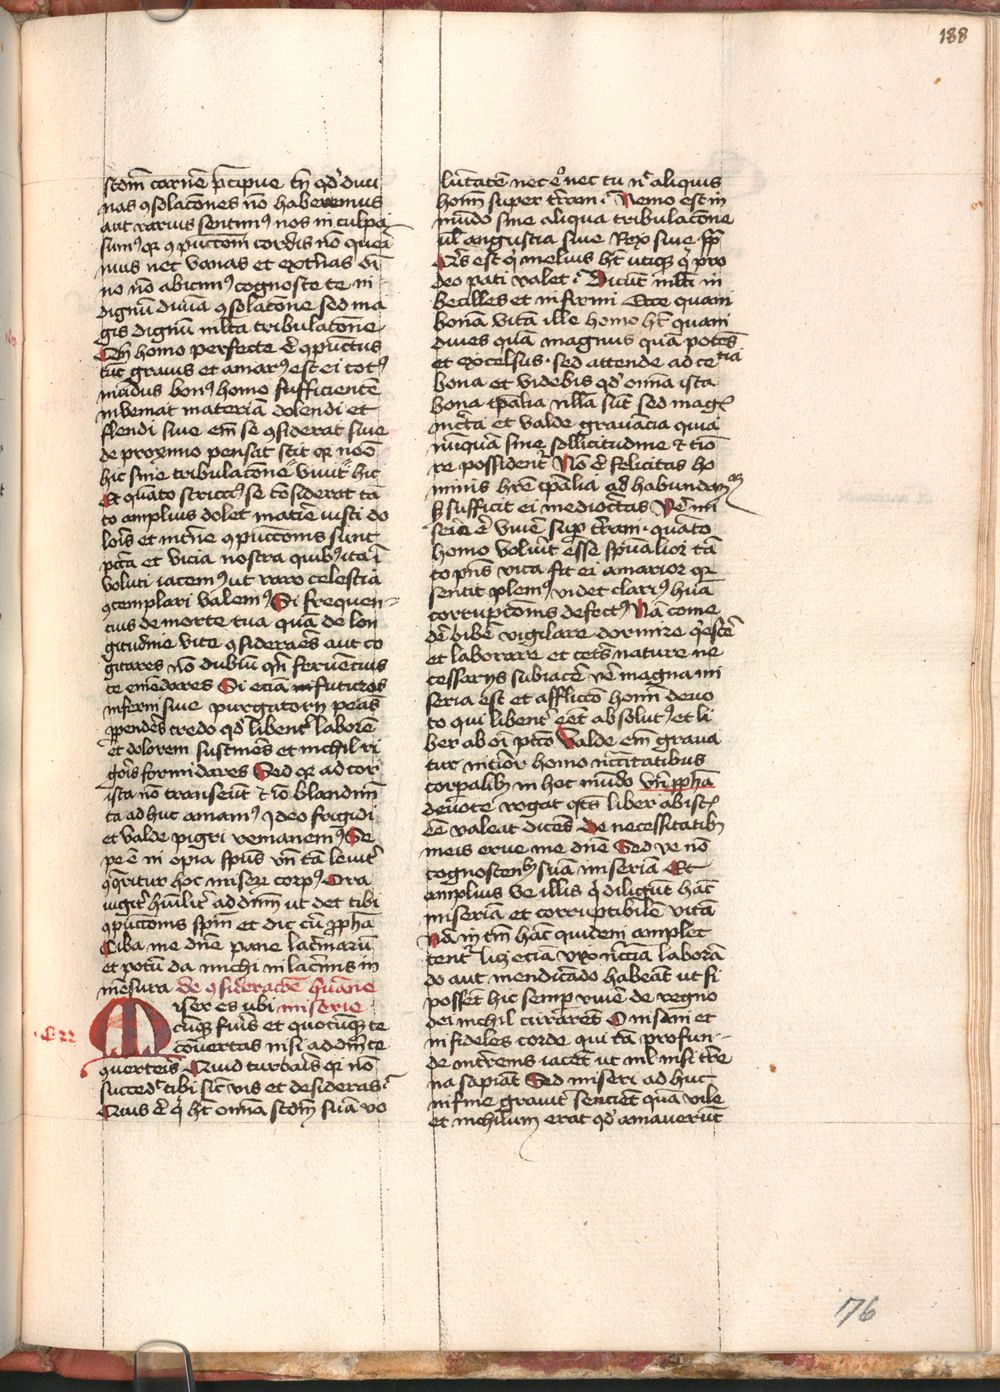 188
scđm carnē p̄cipue tn̄ qđ diui
nas ꝯsolacōnes nō haberemus
aut rarius sentimꝰ nos in culpa
sumꝰ qꝛ ꝯpūccōem cordis nō queri
mus nec vanas et ext'nas oī
no nō abicimꝰ cognosce te in
dignū diuīa ꝯsolacōne sed ma
gis dignū ml̄ta tribulacōne
Cū homo perfecte ē ꝯpūctus
tūc grauis et amarꝰ est ei totꝰ
mūdus bonꝰ homo sufficientē
inveniat materiā dolendi et
flendi siue em̄ se ꝯsiderat siue
de proximo pensat scit qꝛ nēo
hic sine tribulacōne viuit hic
Et quāto strictiꝰ se cōsiderat tā
to amplius dolet matēie iusti do
loīs et int'ne ꝯpūccōnis sunt
pctā et vicia nostra quibꝰ ita ī
voluti iacemꝰ ut raro celestia
ꝯtemplari valemꝰ Si frequen
cius de morte tua quā de lon
gitudīne vite ꝯsiderares aut co
gitares nō dubiū qn̄ feruēcius
te emēdares Si eciā futuros
inferni siue purgatorij penās
ꝑpenderes credo qđ libent' laborē
et dolorem sustineres et nichil ri
goris formidares Sed qꝛ ad cor
ista nō transeūt ⁊ iō blandim̄
ta adhuc amamꝰ Ideo frigidi
et valde pigri remanemꝰ Se
pe ē in opia spūs vn̄ tā levit'
ꝯq̄ritur hoc miserꝝ corpꝰ Ora
igit' hūilit' ad dn̄m ut det tibi
ꝯpūccōnis spm̄ et dic cū ꝓphā
Ciba me dn̄e pane lac'marū
et potū da michi in lac'mis in
mēsura de ꝯsideracōe hūane
miserie
Miser es ubi
cūqꝫ fuīs et quocūqꝫ te
cōuertas nisi ad dm̄ te
ꝯuerteris Quid turbaris qꝛ nō
succedit tibi sic̄ vis et desideras
Quis ē q̄ ht omīa scđm suā vo
C 22
lūtatē nec ego nec tu nec aliquis
hoīm super t'ram Nemo est in
mūdo sine aliqua tribulacōne
ul̄ angustia siue Rex siue pp̄
Quis est q̄ melius ht utiqꝫ q̄ pro
deo pati valet Dicūt ml̄ti in
becilles et infirmi Ecce quam
bonā vitā ille homo ht quam
diues quā magnus quā potēs
et excelsus sed attende ad celestia
bona et videbis qđ omīa ista
bona tp̄alia nlla sūt sed magis
incerta et valde gravācia quia
nūquā sine sollicitudine ⁊ tīo
re possident' Nō ē felicitas ho
minis hr̄e tp̄alia ad habundanciam
sufficit ei mediocritas Vere mi
seria ē vivere sup t'ram quāto
homo voluit esse spūalior tā
to pn̄s vita fit ei amarior qꝛ
sentit pleniꝰ videt clariꝰ hūa
corrupcōnis defectꝰ Nā come
de' bibē vigilare dormire qescē
et laborare et cetīs nature ne
cessarijs subiacē vē magna mi
seria est et affliccō homī devo
to qui libent' eēt absolutꝰ et li
ber ab oī pctō Valde em̄ grava
tur int'ior homo necc̄itatibus
corpalibꝫ in hoc mūdo vn̄ pphā
deuote rogat qts liber ab ist
eē valeat dicens De necessitatibꝫ
meis erue me dn̄e Sed ve nō
cognoscentibꝫ suā miseriā Et
amplius ve illis q̄ diligūt hāc
miseriā et corruptibilē vitā
Nā in tm̄ hāc quidem amplec
tent' lꝫ eciā vix nccīa laborā
do aut mendicādo habeāt ut si
possēt hic semp viuē de regno
dei nichil curarēt O insani et
infideles corde qui tā profun
de in t'renis iacēt ut nl̄ nisi t're
na sapiāt Sed miseri adhuc
in fine grauit' sencīet quā vile
et nichilum erat qđ amaverūt
176